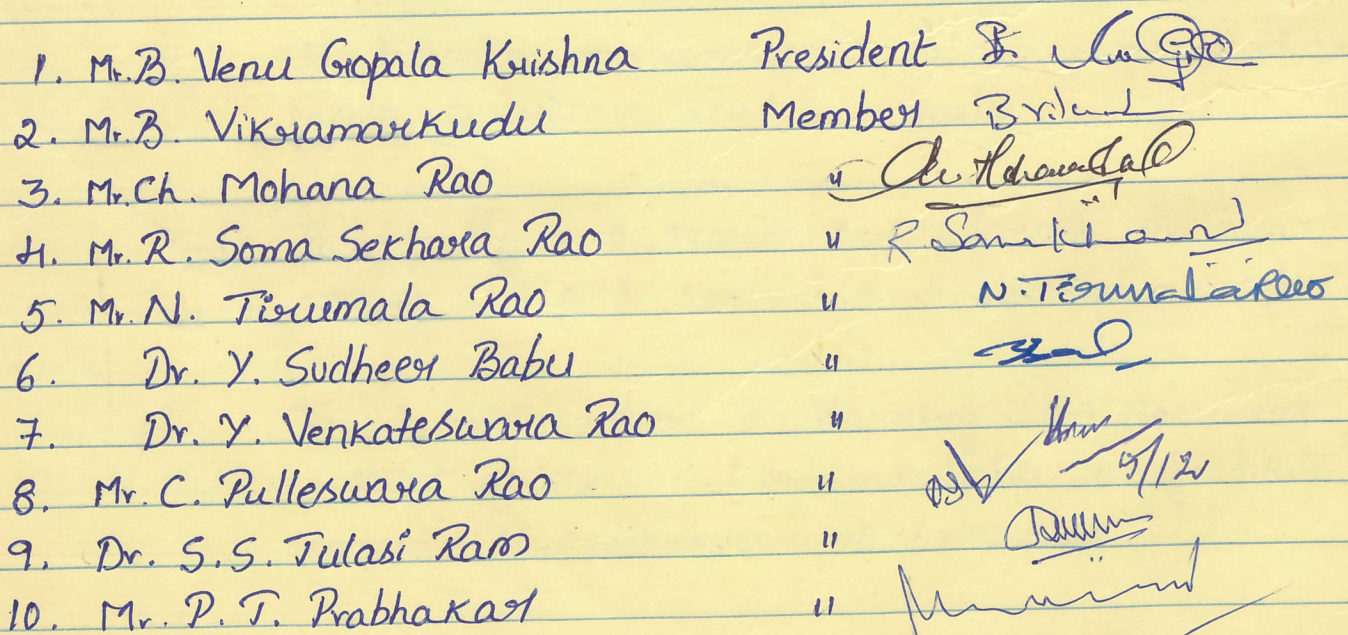 1. Mr. B. Venu Gopala Krishna President B.
2. Mr. B. Vikramarkudu Member
3. Mr. Ch. Mohana Rao " Ch. Mohana Rao
4. Mr. R. Soma Sekhara Rao "
5. Mr. N. Tirumala Rao " N. Tirumala Rao
6. Dr. Y. Sudheer Babu "
7. Dr. Y. Venkateswara Rao "
8. Mr. C. Pulleswara Rao "
9. Dr. S.S. Tulasi Ram "
10. Mr. P. T. Prabhakar "